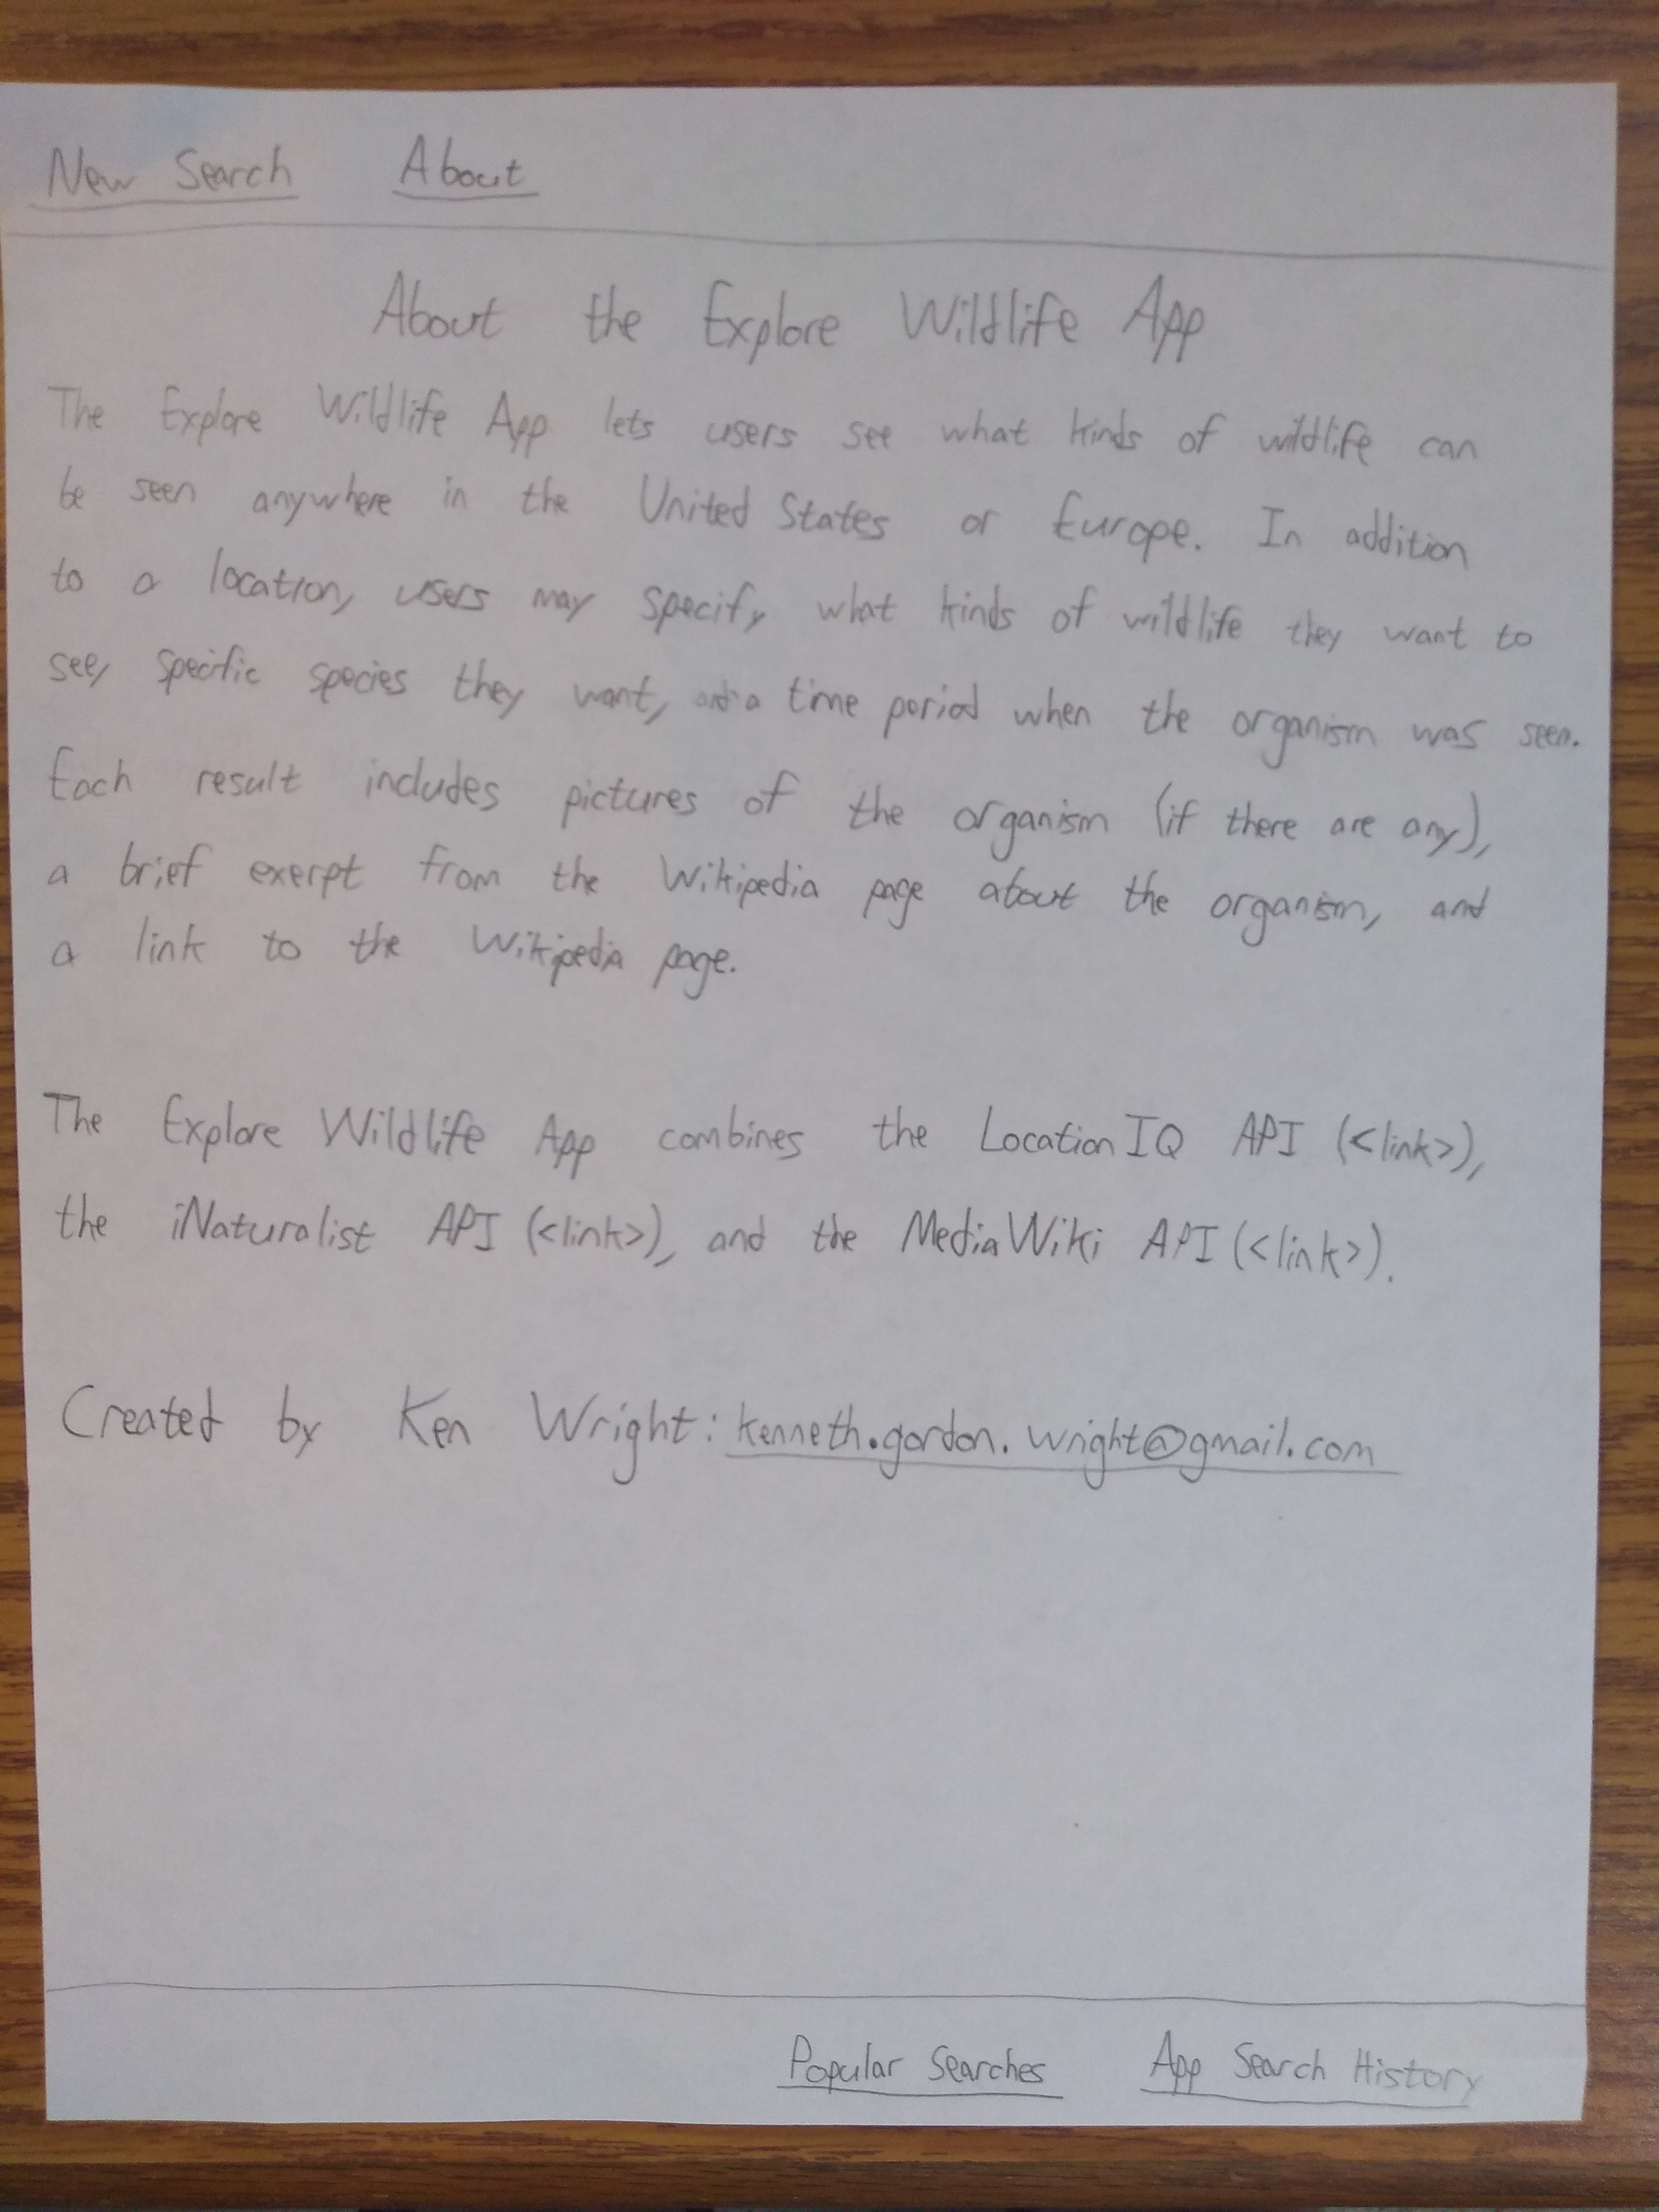 New Search About
About the Explore Wildlife App
The Explore Wildlife App lets users see what kinds of wildlife can
be seen anywhere in the United States or Europe. In addition
to a location, users may specify what kinds of wildlife they want to
see, specific species they want, and a time period when the organism was seen.
Each result includes pictures of the organism (if there are any),
a brief exerpt from the Wikipedia page about the organism, and
a link to the Wikipedia page.
The Explore Wildlife App combines the LocationIQ API (<link>),
the iNaturalist API (<link>), and the MediaWiki API (<link>).
Created by Ken Wright: kenneth.gordon.wright@gmail.com
Popular Searches App Search History